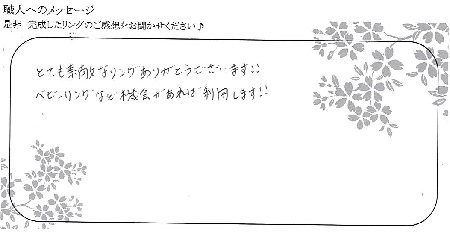 職人へのメッセージ
是非、完成したリングのご感想をお聞かせください♪
とても素敵なリングありがとうございます!!
ベビーリングなど機会があれば利用します!!